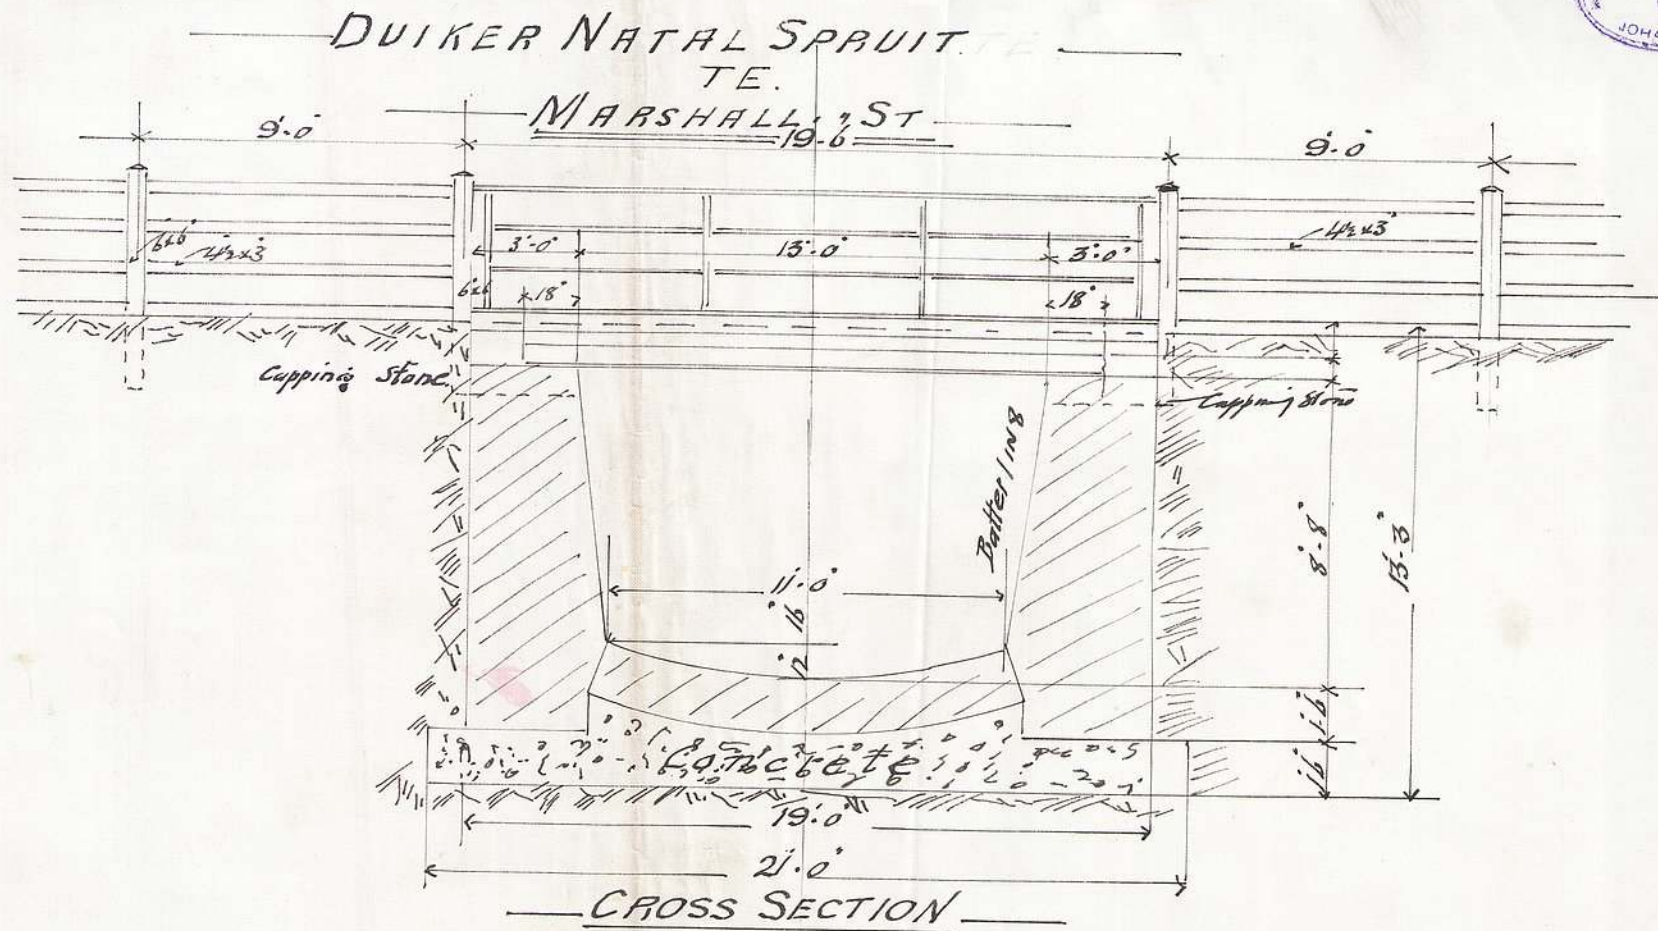 DUIKER NATAL SPRUIT.
TE.
MARSHALL. ST
9'-0"
19'-6"
9'-0"
6"x6"
4½"x3"
3'-0"
13'-0"
3'-0"
4½"x3"
6"x6"
18"
18"
Capping Stone
Capping Stone
Batter 1 IN 8
11'-0"
8'-8"
13'-3"
1'6"
12"
1'-6"
Concrete
1'6"
19'-0"
21'-0"
CROSS SECTION